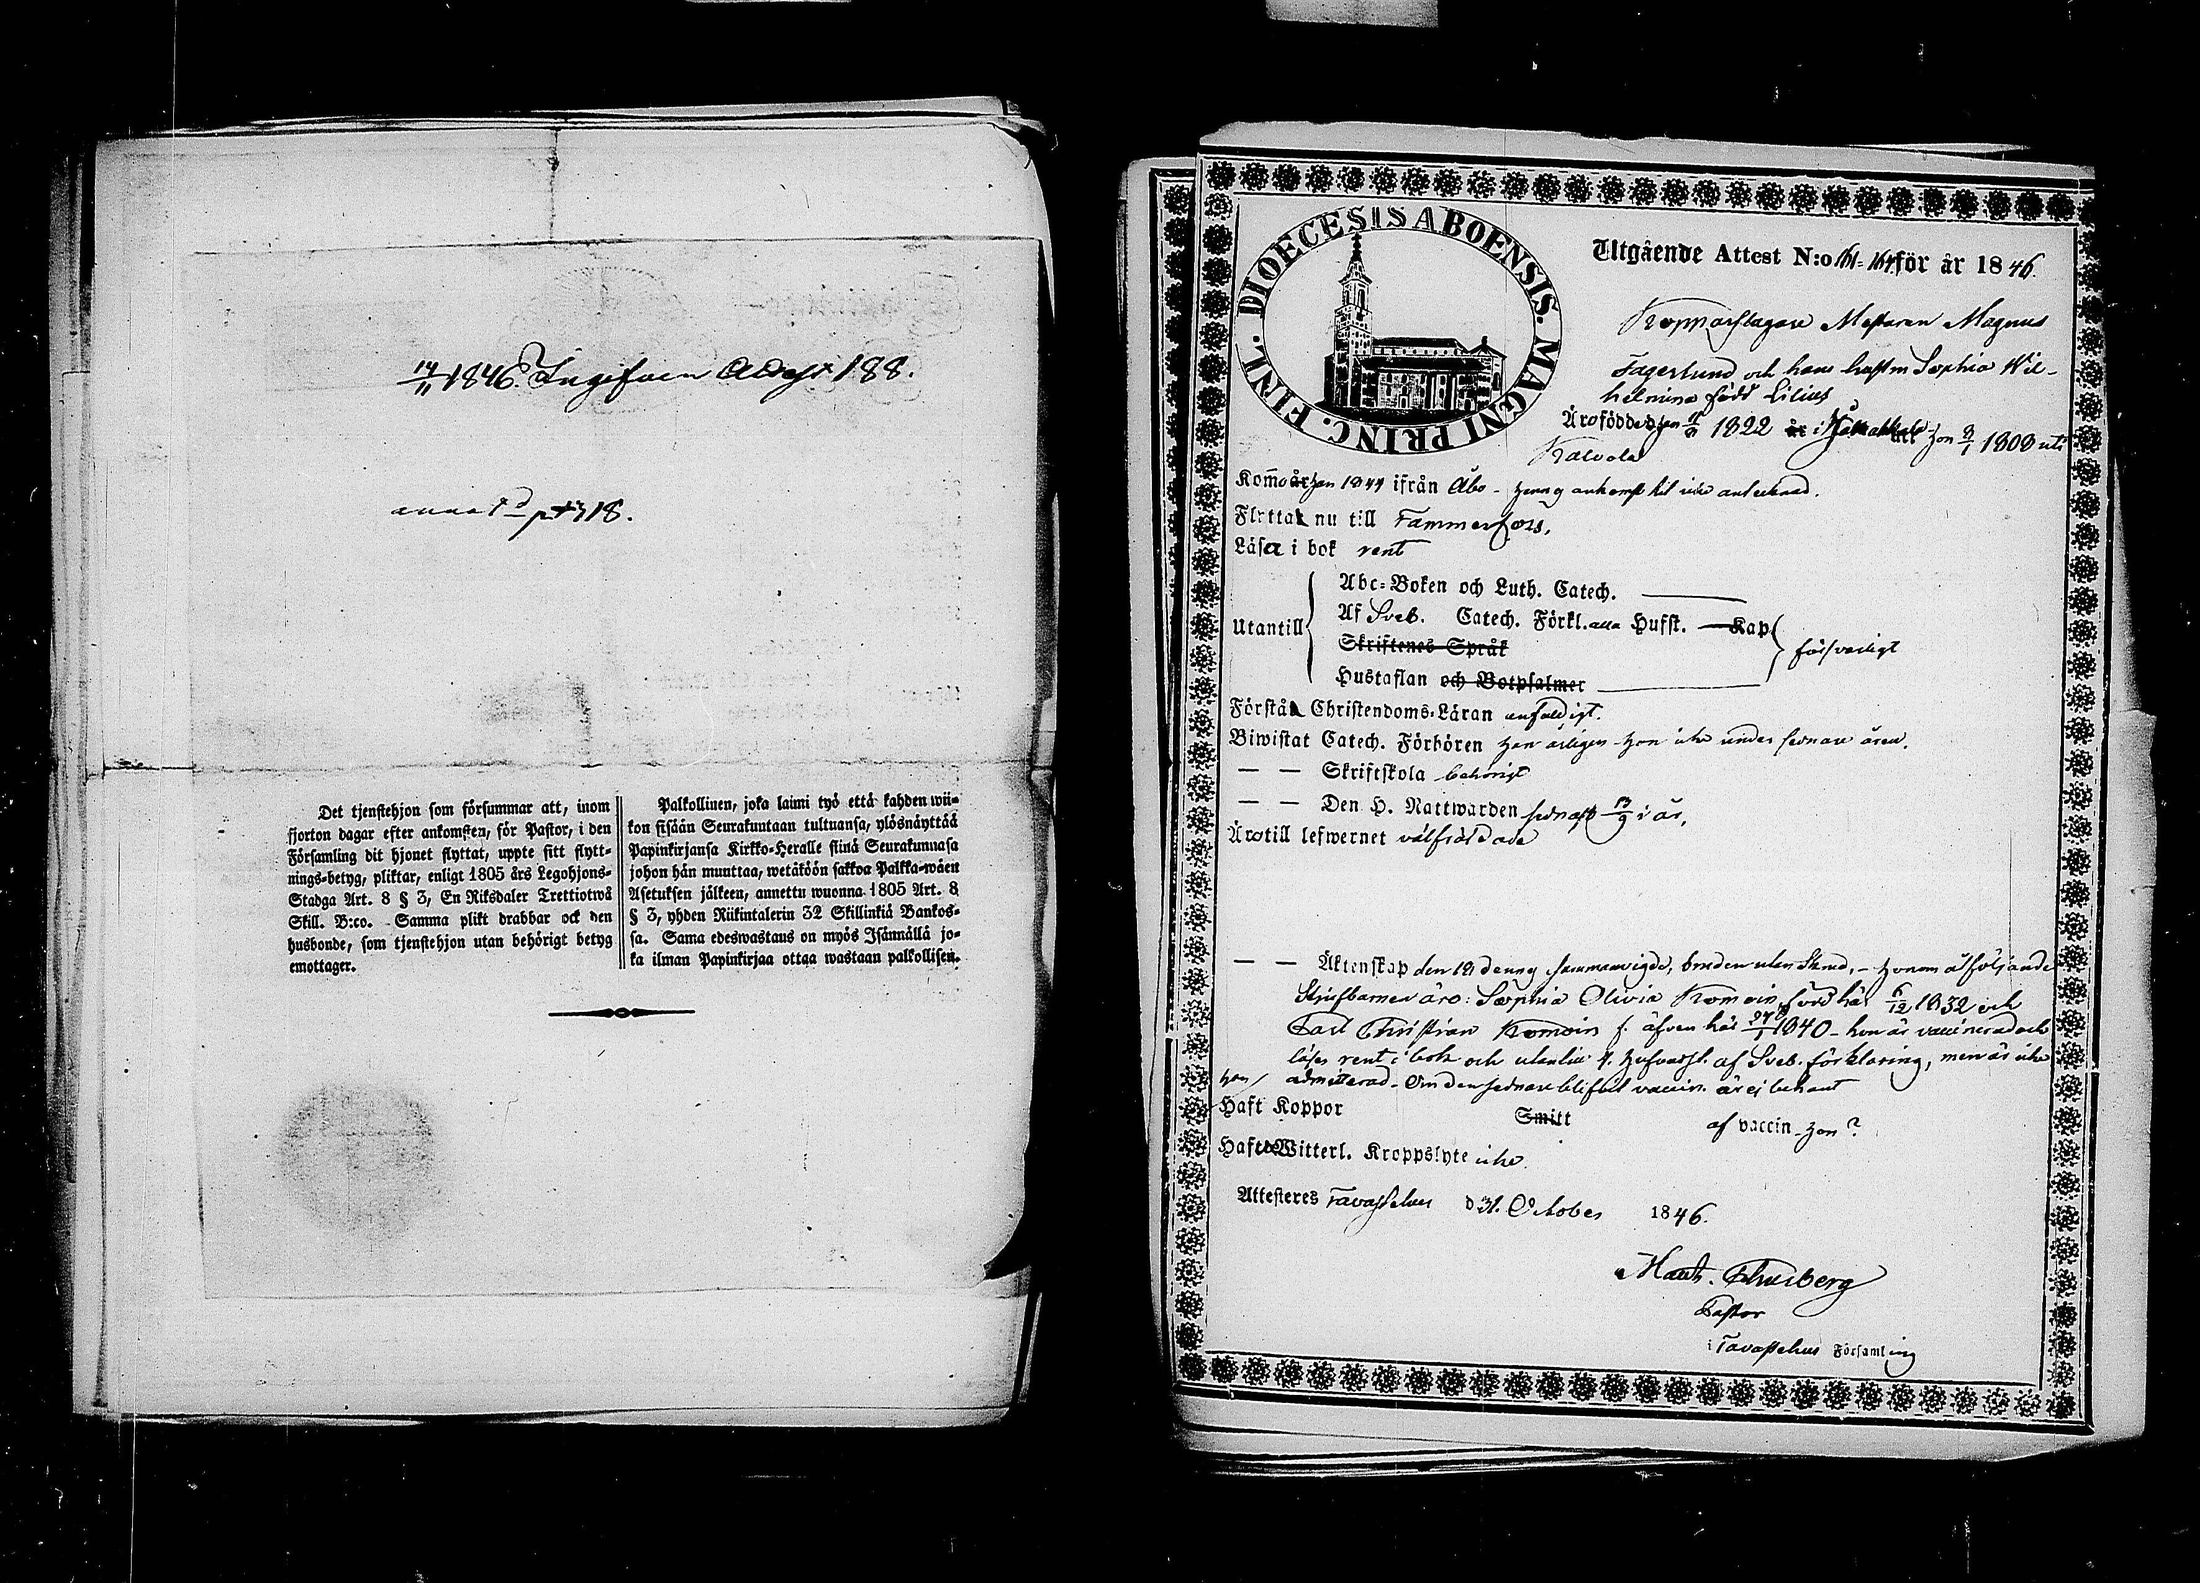 14/11 1846. Ingifven Attest 188.
annot d pag 718.
Det tjenstehjon som försummar att, inom
fjorton dagar efter ankomsten, för Pastor, i den
Församling dit hjonet flyttat, uppte sitt flytt-
nings-betyg, pliktar, enligt 1805 års Legohjons-
Stadga Art. 8 § 3, En Riksdaler Trettiotwå
Skill. B:co. Samma plikt drabbar ock den
husbonde, som tjenstehjon utan behörigt betyg
emottager.
Palkollinen, joka laimi työ että kahden wii-
kon sisään Seurakuntaan tultuansa, ylösnäyttää
Papinkirjansa Kirkko-Heralle siinä Seurakunnasa
johon hän munttaa, wetätöön sakkoa Palkka-wäen
Asetuksen jälkeen, annettu wuonna 1805 Art. 8
§ 3, yhden Riikintalerin 32 Skillinkiä Bankos-
sa. Sama edeswastaus on myös Isännällä jo-
ka ilman Papinkirjaa ottaa wastaan palkollisen.
DIOECESIS ABOENSIS. MAGNI PRINC. FINL.
Utgående Attest N:o 161-164 för år 1846.
Kopparslagare Mästaren Magnus
Fagerlund och hans hustru Sophia Wil-
helmina född Lilius
Äro födde han 11/9 1822 år i hon 8/1 1808 uti
Kalvola
Komo år han 1844 ifrån Åbo - hennes ankomst hit icke antecknad.
Flytta nu till Tammerfors,
Läsa i bok rent
Abc-Boken och Luth. Catech.
Utantill Af Sveb. Catech. Förkl. alla Hufst. Kap försvarligt
Skriftenes Språk
Hustaflan och Botpsalmer
Förstå Christendoms-Läran enfaldigt.
Biwistat Catech. Förhören han årligen hon icke under sednare åren.
— — Skriftskola behörigt
— — Den H. Nattwarden sednast 13/9 i år,
Äro till lefwernet välfräjdade
— — Äktenskap den 18 dennes sammanvigde, bruden utan Skrud, - Honom åtföljande
Stjufbarnen äro: Sophia Olivia Komoin, född här 6/12 1832 och
Carl Christian Komoin f. äfven här 27/1 1840 - hon är vaccinerad och
läser rent i bok och utantill 4. Hufvudst. af Sveb. förklaring, men är icke
admitterad. Om den sednare blifvit vaccin. är ej bekant
hon /
Haft Koppor Smitt af vaccin han ?
Hafva Witterl. Kroppslyte icke.
Attesteres Tavastehus d 31. October 1846.
Pastor
i Tavastehus Församling